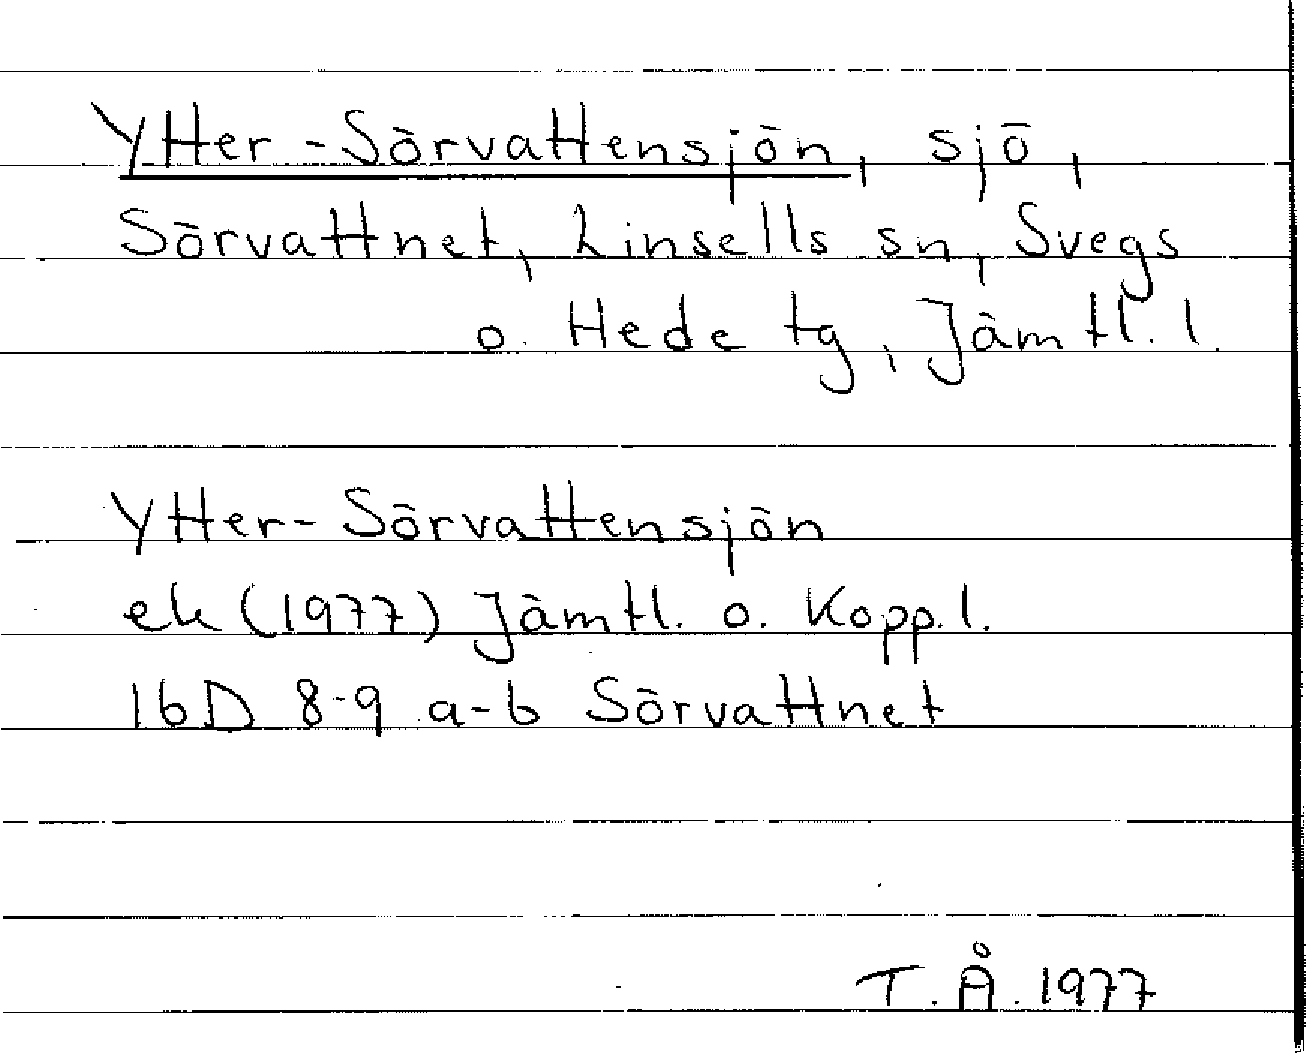 Ytter-Sörvattensjön, sjö,
Sörvattnet, Linsells sn, Svegs
o. Hede tg, Jämtl. l.
Ytter-Sörvattensjön
ek (1977) Jämtl. o. Kopp. l.
16D 8-9 a-b Sörvattnet
T. Å. 1977